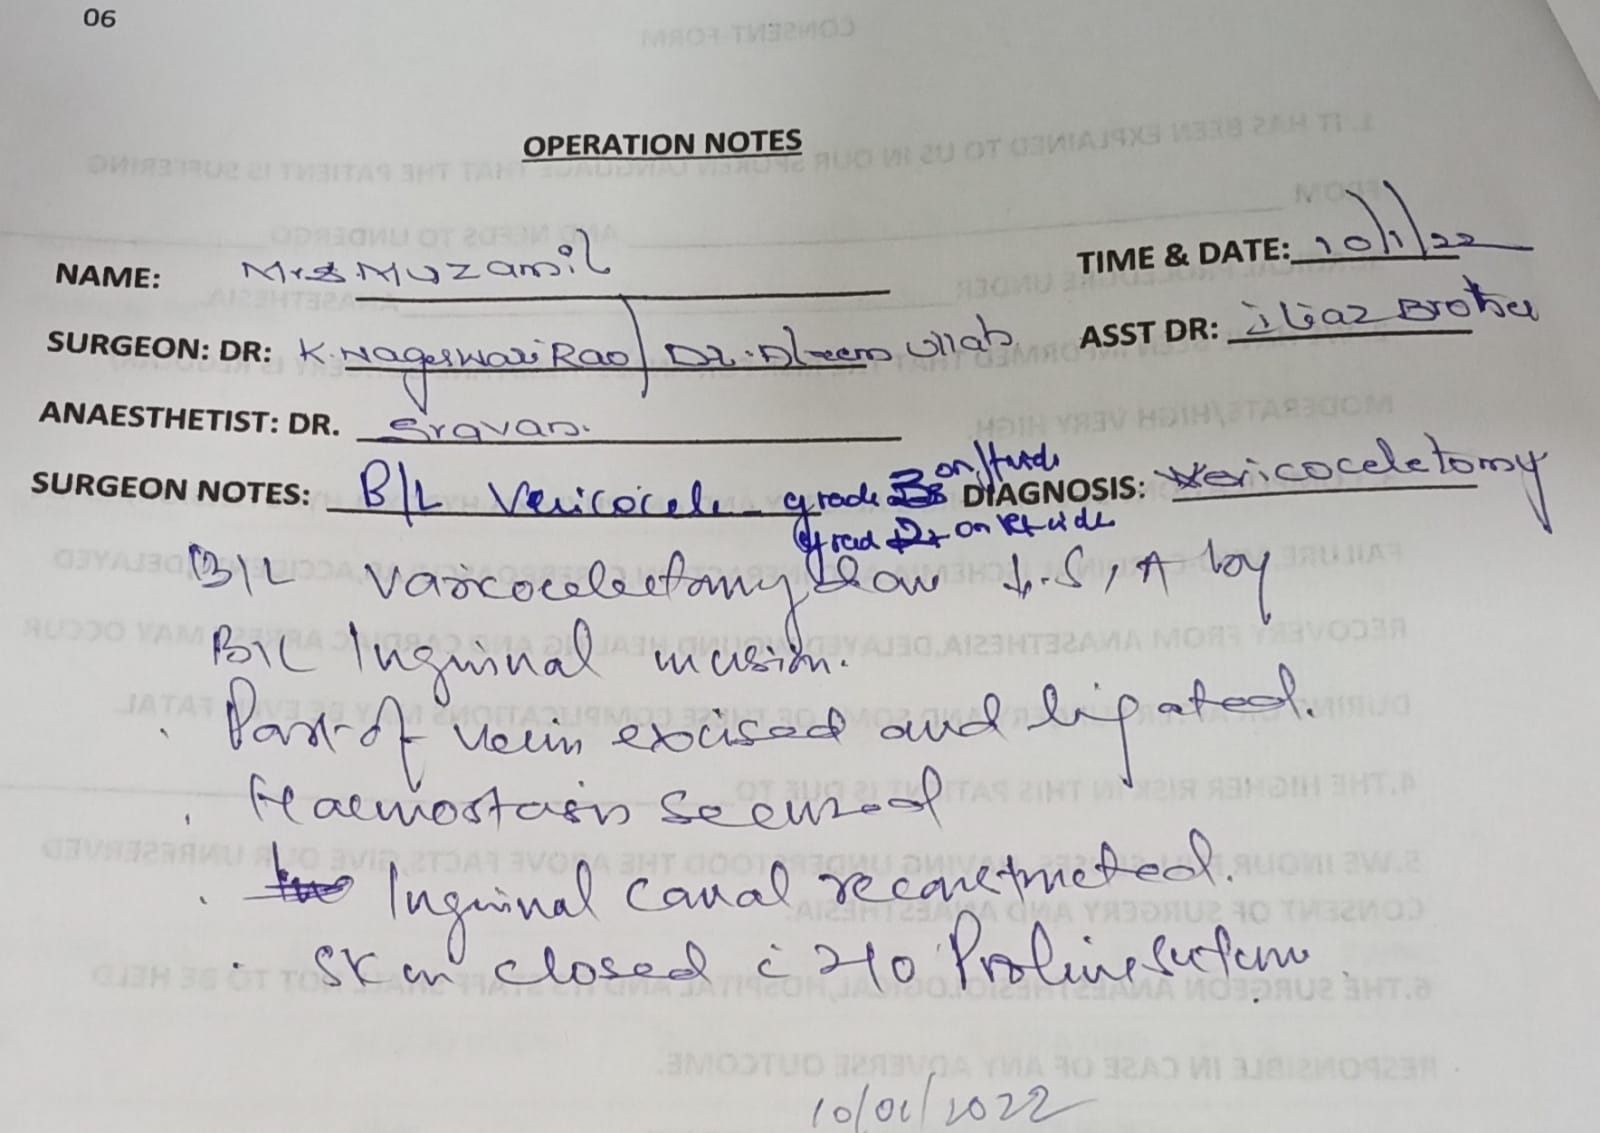 06
OPERATION NOTES
NAME: Mrs Muzamil
TIME & DATE: 10/1/22
SURGEON: DR: K.Nageswari Rao / Dr. Ullah
ASST DR: Brother
ANAESTHETIST: DR. Sravan.
SURGEON NOTES: B/L Vericocele - grade 3 on side DIAGNOSIS: Varicoceletomy
Grad on Rt side
B/L varicocelectomy S/A by
B/L Inguinal incision.
. Part of vein excised and ligated.
. Haemostasis secured
. Inguinal canal reconstructed.
. Skin closed c 2-0 Proline suture.
10/01/2022